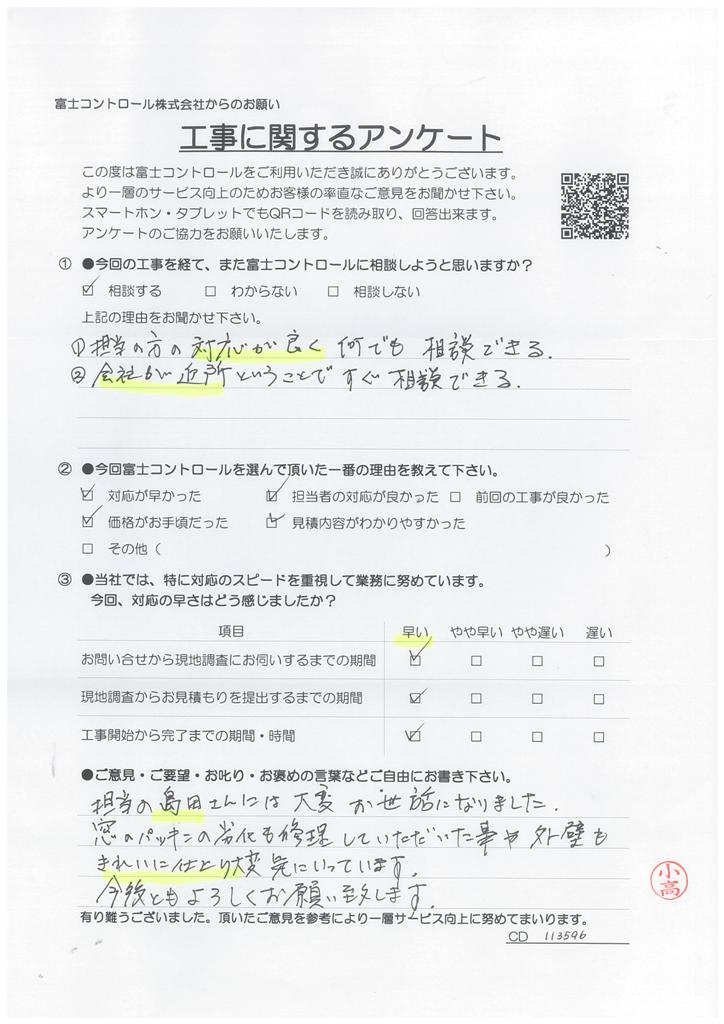 富士コントロール株式会社からのお願い
工事に関するアンケート
この度は富士コントロールをご利用いただき誠にありがとうございます。
より一層のサービス向上のためお客様の率直なご意見をお聞かせ下さい。
スマートホン・タブレットでもQRコードを読み取り、回答出来ます。
アンケートのご協力をお願いいたします。
① ●今回の工事を経て、また富士コントロールに相談しようと思いますか？
☑ 相談する □ わからない □ 相談しない
上記の理由をお聞かせ下さい。
①担当の方の対応が良く何でも相談できる.
②会社が近所ということですぐ相談できる.
② ●今回富士コントロールを選んで頂いた一番の理由を教えて下さい。
☑ 対応が早かった ☑ 担当者の対応が良かった □ 前回の工事が良かった
☑ 価格がお手頃だった ☑ 見積内容がわかりやすかった
□ その他（ ）
③ ●当社では、特に対応のスピードを重視して業務に努めています。
今回、対応の早さはどう感じましたか？
項目 早い やや早い やや遅い 遅い
お問い合せから現地調査にお伺いするまでの期間 ☑ □ □ □
現地調査からお見積もりを提出するまでの期間 ☑ □ □ □
工事開始から完了までの期間・時間 ☑ □ □ □
●ご意見・ご要望・お叱り・お褒めの言葉などご自由にお書き下さい。
担当の島田さんには大変お世話になりました.
窓のパッキンの劣化も修理していただいた事や外壁も
きれいに仕上り大変気にいっています.
今後ともよろしくお願い致します.
小高
有り難うございました。頂いたご意見を参考により一層サービス向上に努めてまいります。
CD 113596